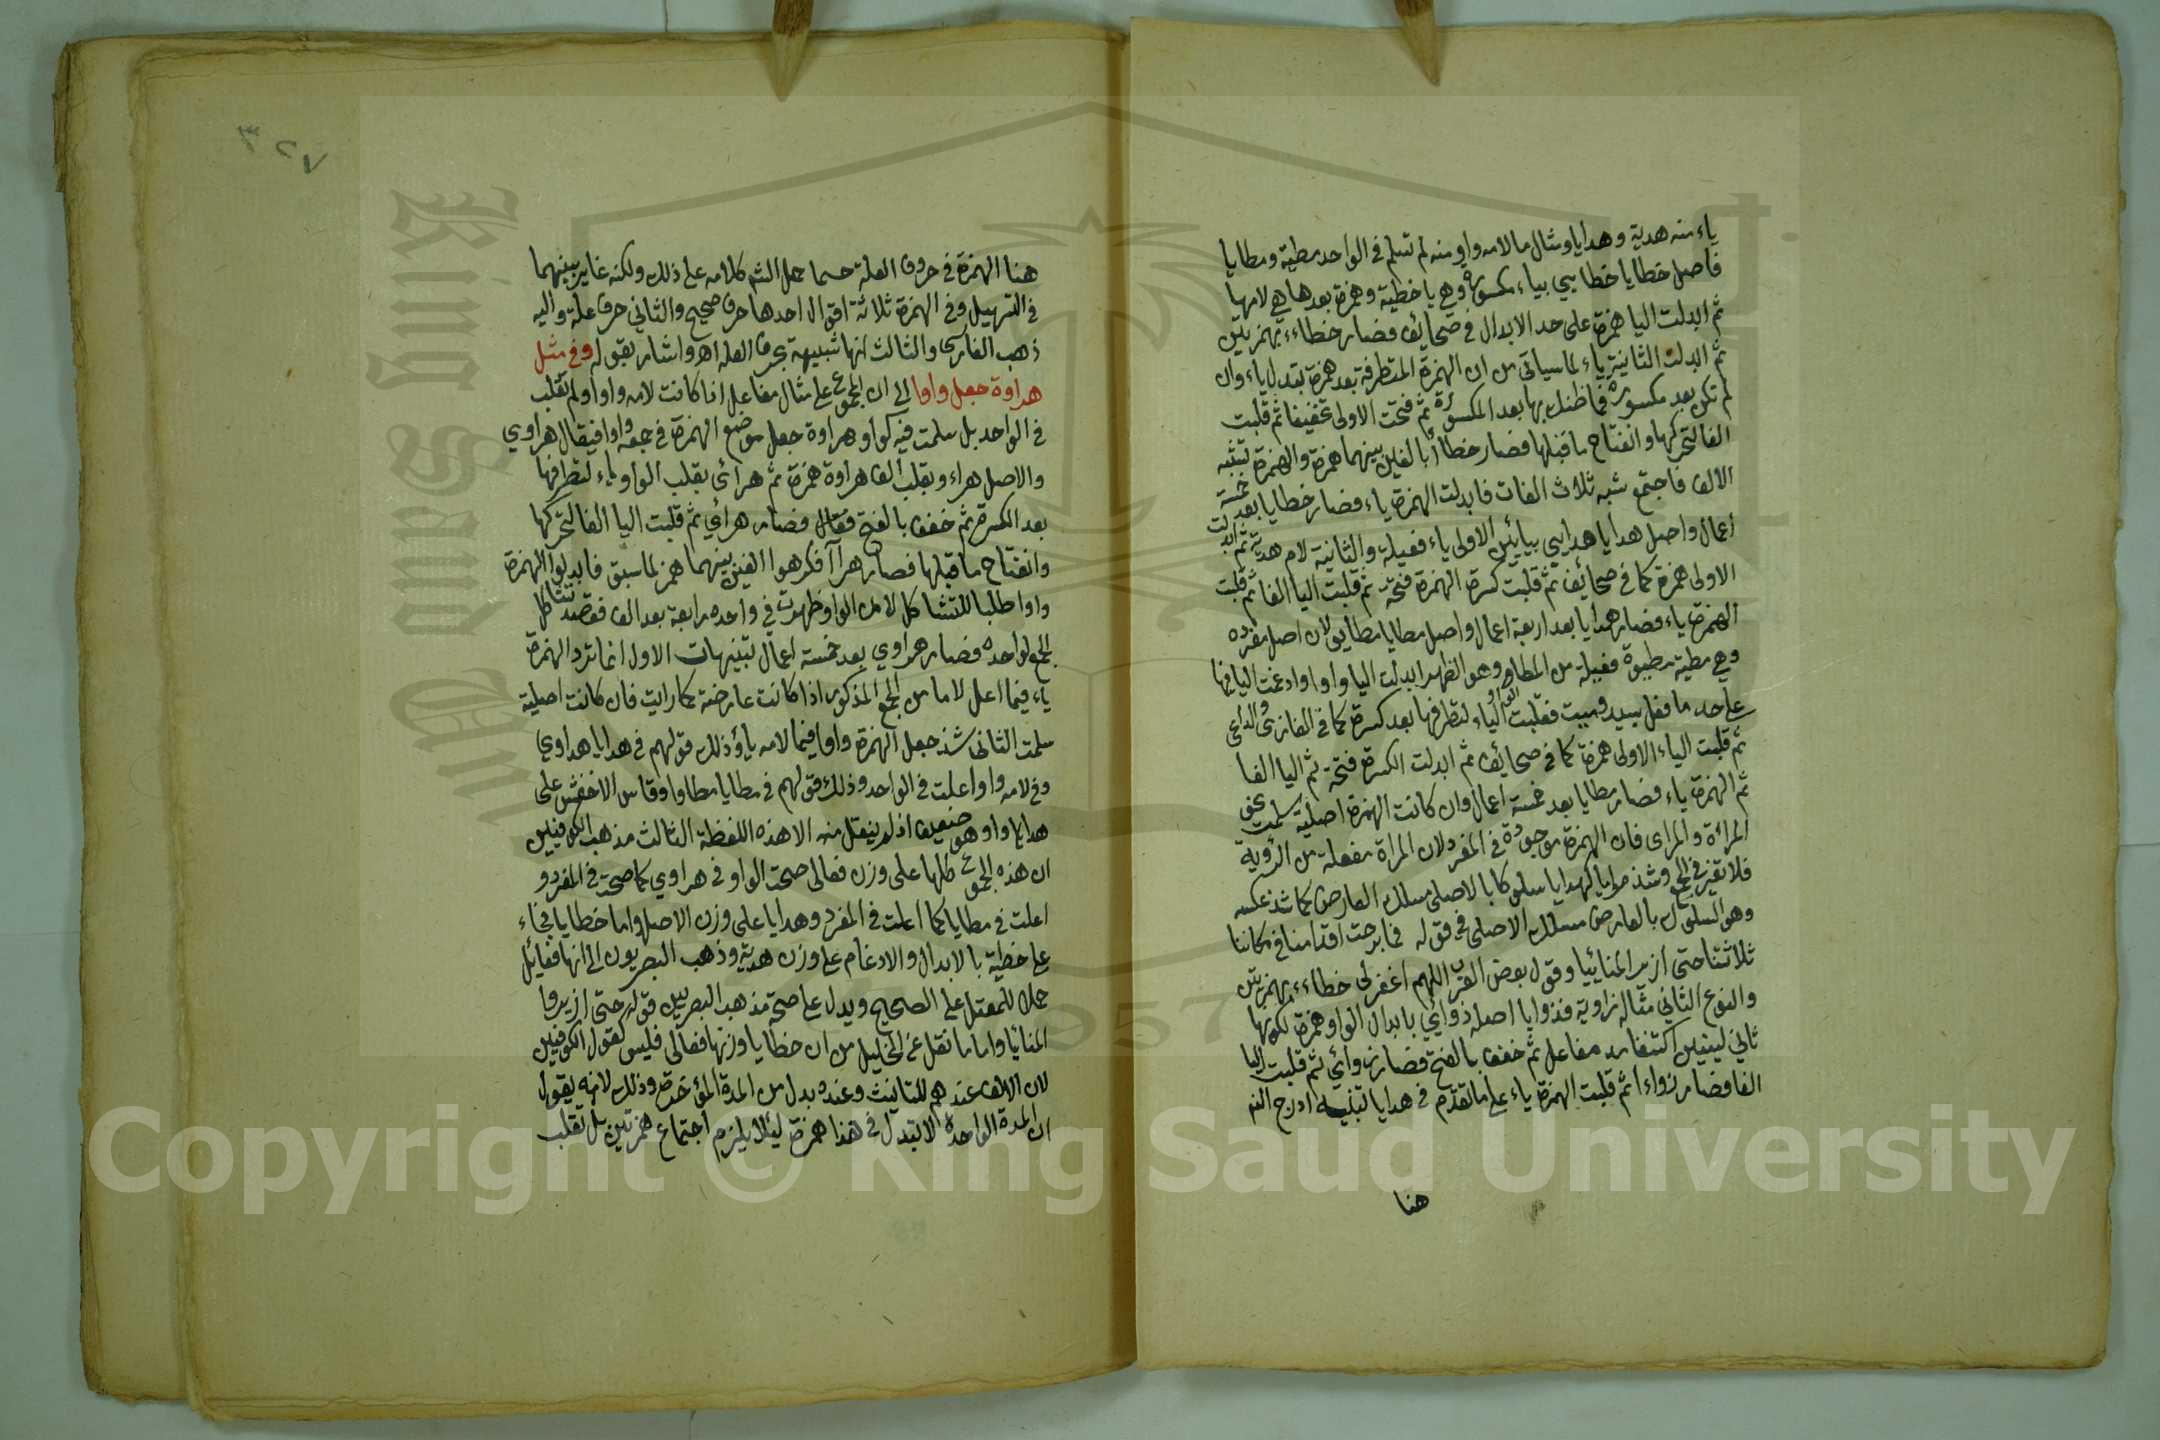 ياء منه هدية وهدايا ومثال ما لامه واو منه لم تسلم في الواحد مطية ومطايا
فاصل خطايا خطايىء بياء مكسورة وهي يا خطية وهمزة بعدها هي لامها
ثم ابدلت اليا همزة على حد الابدال في صحائف فصار خطاءء بهمزتين
ثم ابدلت الثانية ياء لما سياتي من ان الهمزة المتطرفة بعد همزة تبدل ياء وان
لم تكن بعد مكسورة فما ظنك بها بعد المكسورة ثم فتحت الاولى تخفيفا ثم قلبت
الفا لتحركها وانفتاح ما قبلها فصار خطاأ بالفين بينهما همزة والهمزة تشبه
الالف فاجتمع شبه ثلاث الفات فابدلت الهمزة ياء فصار خطايا بعد خمسة
اعمال واصل هدايا هدايي بيائين الاولى ياء فعيلة والثانية لام هدية ثم ابدلت
الاولى همزة كما في صحائف ثم قلبت كسرة الهمزة فتحة ثم قلبت اليا الفا ثم قلبت
الهمزة ياء فصار هدايا بعد اربعة اعمال واصل مطايا مطايو لان اصل مفرده
وهي مطية مطيوة فعيلة من المطا وهو الظهر ابدلت اليا واوا وادغمت اليا فيها
على حد ما فعل بسيد وميت فقلبت الواو ياء لتطرفها بعد كسرة كما في الغازي والداعي
ثم قلبت الياء الاولى همزة كما في صحائف ثم ابدلت الكسرة فتحة ثم اليا الفا
ثم الهمزة ياء فصار مطايا بعد خمسة اعمال وان كانت الهمزة اصلية سلمت نحو
المراة والمراى فان الهمزة موجودة في المفرد لان المراة مفعلة من الرؤية
فلا تغير في الجمع وشذ مرايا كهدايا سلوكا بالاصلي مسلك العارض كما شذ عكسه
وهو السلوك بالعارض مسلك الاصلي في قوله فما برحت اقدامنا في مكاننا
ثلاثتنا حتى ازيروا المنائيا وقول بعض العرب اللهم اغفر لي خطاءء بهمزتين
والنوع الثاني مثاله زاوية فزوايا اصله زوائي بابدال الواو همزة لكونها
ثاني لينين اكتنفا مد مفاعل ثم خفف بالفتح فصار زوائي ثم قلبت اليا
الفا فصار زواءا ثم قلبت الهمزة ياء على ما تقدم في هدايا تنبيه ادرج الش
هنا
٣٢٧
هنا الهمزة في حروف العلة حسما حمل الش كلامه على ذلك ولكنه غاير بينهما
في التسهيل وفي الهمزة ثلاثة اقوال احدها حرف صحيح والثاني حرف علة واليه
ذهب الفارسى والثالث انها شبيهة بحرف العلة اه واشار بقوله وفي مثل
هراوة جعل واوا الى ان الجموع على مثال مفاعل اذا كانت لامه واوا ولم تقلب
في الواحد بل سلمت فيه كواو هراوة جعل موضع الهمزة في جمعه واوا فيقال هراوي
والاصل هراءو بقلب الف هراوة همزة ثم هرائى بقلب الواو ياء لتطرفها
بعد الكسرة ثم خفف بالفتح فقال فصار هرأي ثم قلبت اليا الفا لتحركها
وانفتاح ما قبلها فصار هرأا فكرهوا الفين بينهما همز لما سبق فابدلوا الهمزة
واوا طلبا للتشاكل لان الواو ظهرت في واحده رابعة بعد الف فقصد تشاكل
الجمع لواحده فصار هراوي بعد خمسة اعمال تنبيهات الاول انما ترد الهمزة
ياء فيما اعل لاما من الجمع المذكور اذا كانت عارضة كما رايت فان كانت اصلية
سلمت الثاني شذ جعل الهمزة واوا فيما لامه ياء وذلك قولهم في هدايا هداوي
وفي لامه واو اعلت في الواحد وذلك قولهم في مطايا مطاوا وقاس الاخفش على
هدايا واو وهو ضعيف اذ لم ينقل منه الا هذه اللفظة الثالث مذهب الكوفيين
ان هذه الجموع كلها على وزن فعالى صحت الواو في هراوي كما صحت في المفرد و
اعلت في مطايا كما اعلت في المفرد وهدايا على وزن الاصل واما خطايا فجاء
على خطية بالابدال والادغام على وزن هدية وذهب البصريون الى انها فعائل
حملا للمعتل على الصحيح ويدل على صحة مذهب البصريين قوله حتى ازيروا
المنائيا واما ما نقل عن الخليل من ان خطايا وزنها فعالى فليس كقول الكوفيين
لان الالف عندهم للتانيث وعنده بدل من المدة المؤخرة وذلك لانه يقول
ان المدة الواحدة لا تبدل في هذا همزة لئلا يلزم اجتماع همزتين بل تقلب